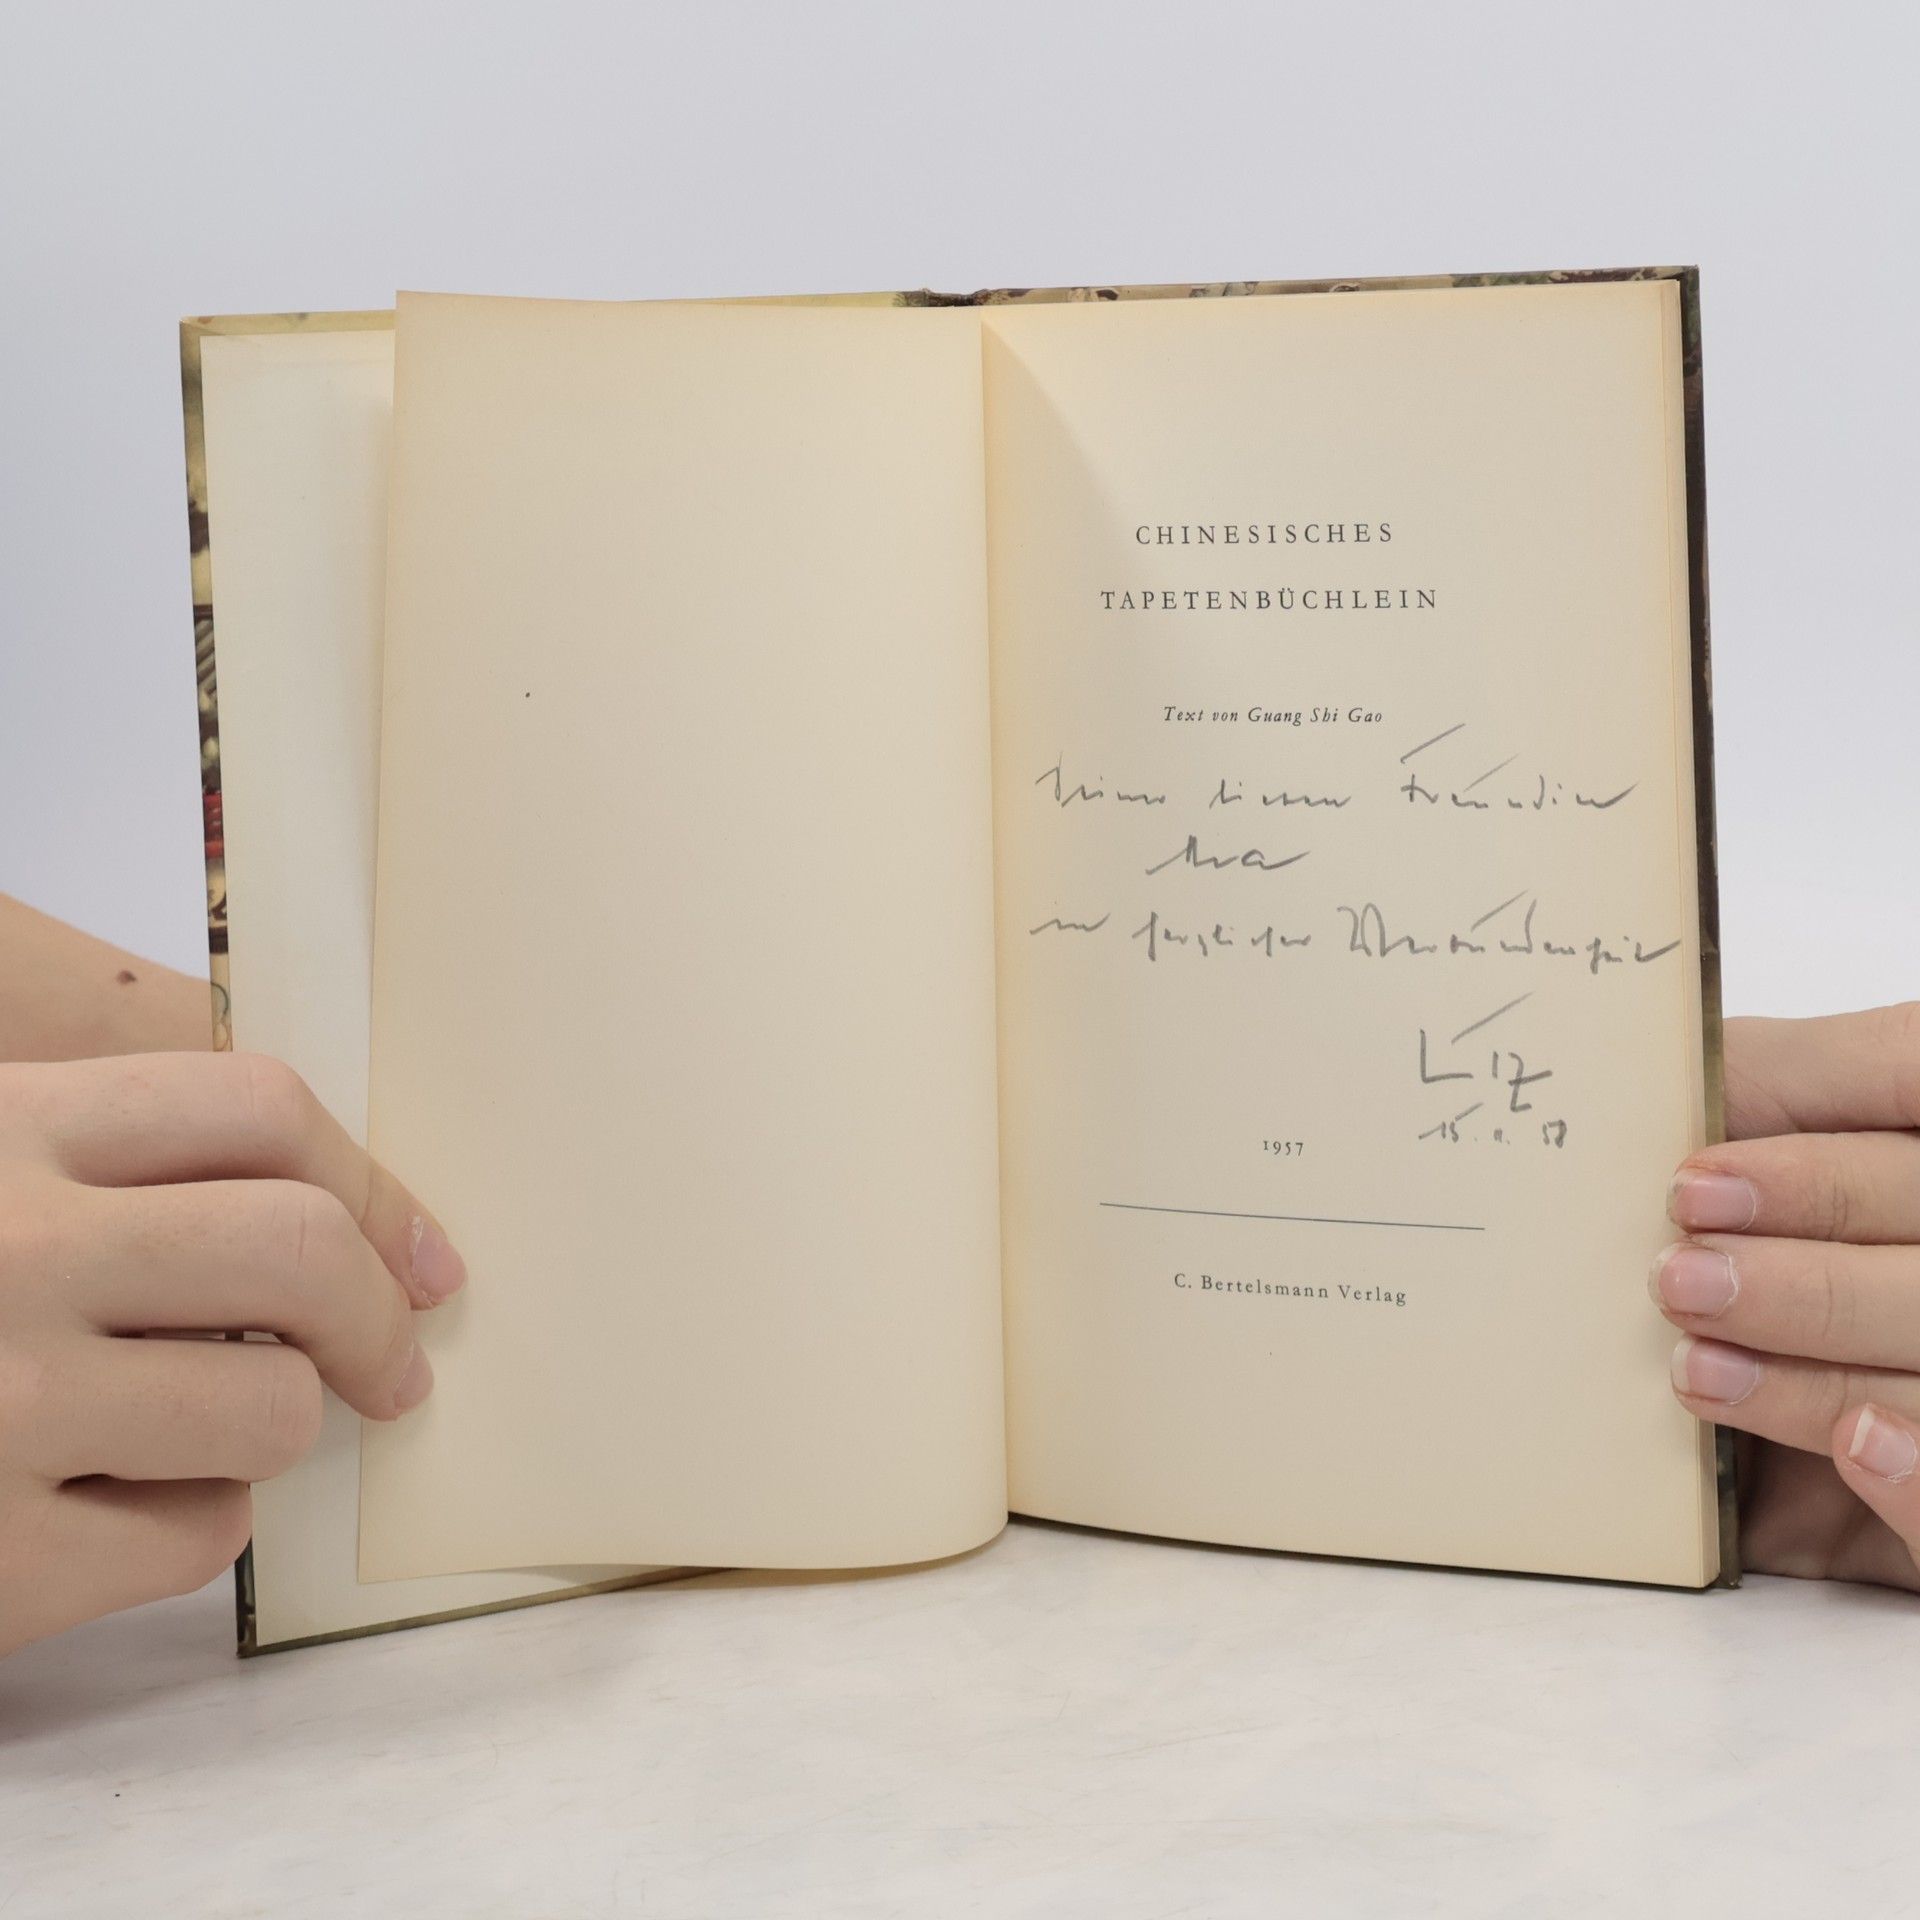 CHINESISCHES
TAPETENBÜCHLEIN
Text von Guang Shi Gao
lieben Freundin
in herzlicher Verbundenheit
15. 11. 58
1957
C. Bertelsmann Verlag